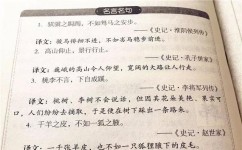 名言名句
1. 骐骥之跼躅，不如驽马之安步。
——《史记·淮阴侯列传》
译文：骏马徘徊不进，不如劣马稳步前进。
2. 高山仰止，景行行止。
——《史记·孔子世家》
译文：巍峨的高山令人仰望，宽阔的大路让人行走。
3. 桃李不言，下自成蹊。
——《史记·李将军列传》
译文：桃树、李树不会说话，但因其花朵美艳，果实可口，
人们纷纷去摘取，于是便在树下踩出一条路来。
4. 千羊之皮，不如一狐之腋。
——《史记·赵世家》
译文：一千张羊皮，也不如一只狐狸腋下的皮毛。